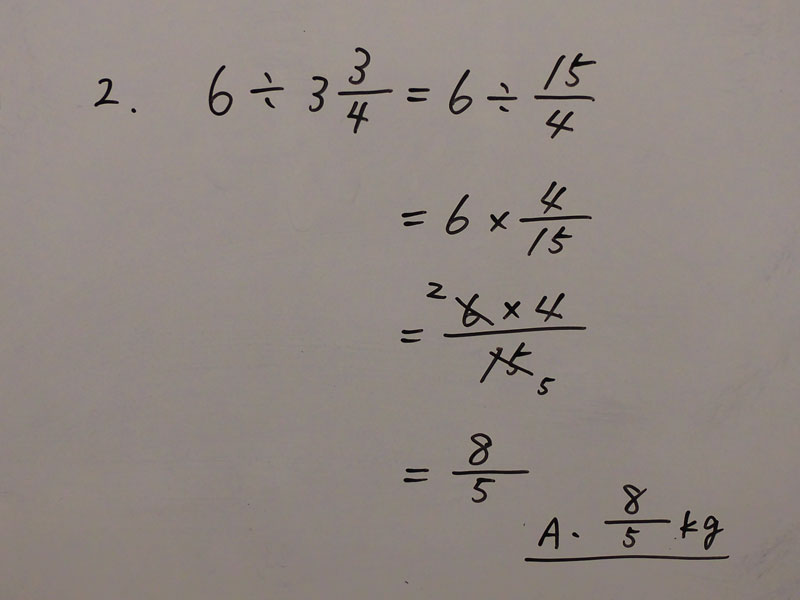 2. 6 ÷ 3 3/4 = 6 ÷ 15/4
= 6 × 4/15
= 2 6 × 4 / 15 5
= 8/5
A. 8/5 kg